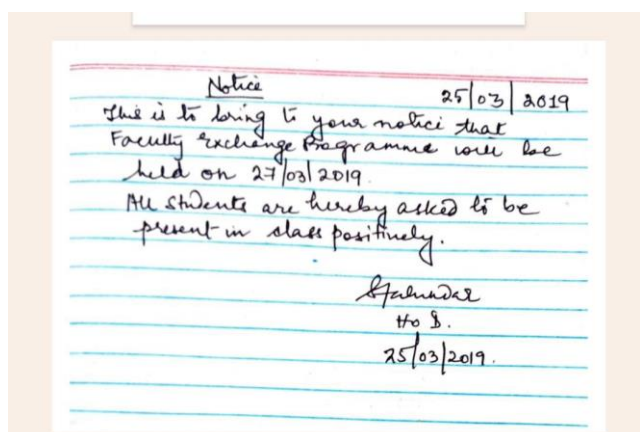 Notice
25/03/2019
This is to bring to your notice that
Faculty Exchange Programme will be
held on 27/03/2019.
All Students are hereby asked to be
present in class positively.
HoD.
25/03/2019.